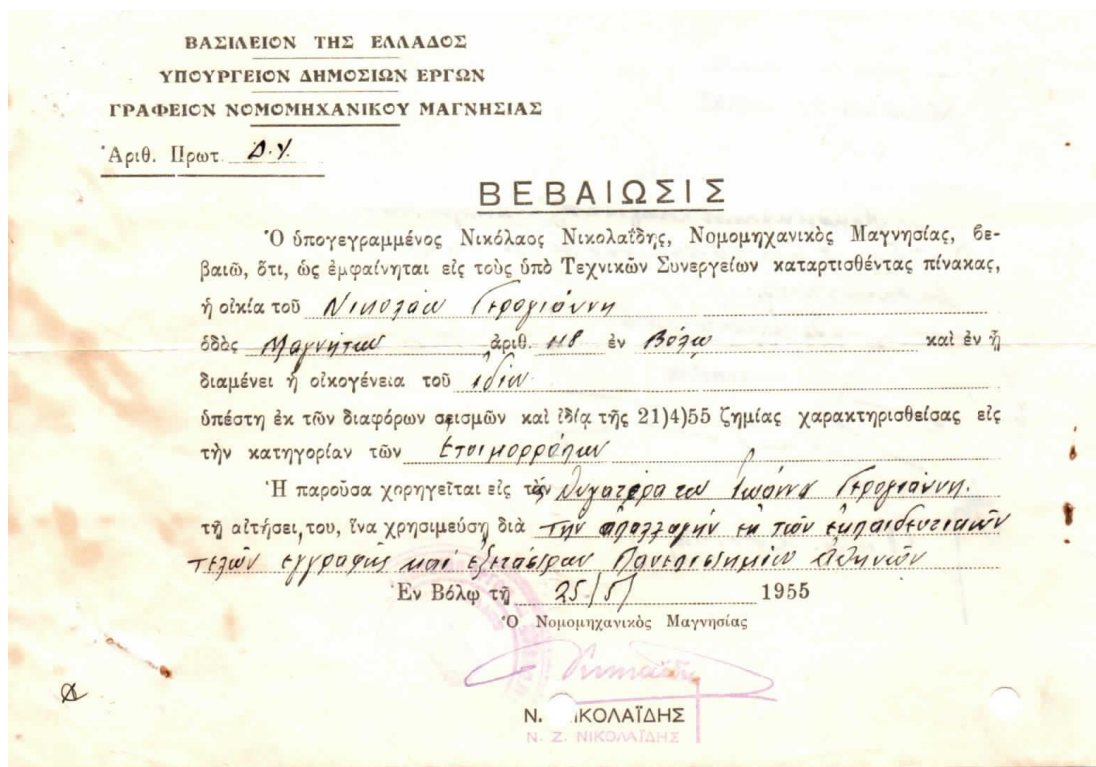 ΒΑΣΙΛΕΙΟΝ ΤΗΣ ΕΛΛΑΔΟΣ
ΥΠΟΥΡΓΕΙΟΝ ΔΗΜΟΣΙΩΝ ΕΡΓΩΝ
ΓΡΑΦΕΙΟΝ ΝΟΜΟΜΗΧΑΝΙΚΟΥ ΜΑΓΝΗΣΙΑΣ
Ἀριθ. Πρωτ. Δ.Υ.
ΒΕΒΑΙΩΣΙΣ
Ὁ ὑπογεγραμμένος Νικόλαος Νικολαΐδης, Νομομηχανικὸς Μαγνησίας, βε-
βαιῶ, ὅτι, ὡς ἐμφαίνηται εἰς τοὺς ὑπὸ Τεχνικῶν Συνεργείων καταρτισθέντας πίνακας,
ἡ οἰκία τοῦ Νικολάου Γερογιάννη
ὁδὸς Μαγνήτων ἀριθ. 118 ἐν Βόλῳ καὶ ἐν ᾗ
διαμένει ἡ οἰκογένεια τοῦ ἰδίου
ὑπέστη ἐκ τῶν διαφόρων σεισμῶν καὶ ἰδίᾳ τῆς 21)4)55 ζημίας χαρακτηρισθείσας εἰς
τὴν κατηγορίαν τῶν Ετοιμορρόπων
Ἡ παροῦσα χορηγεῖται εἰς τὴν θυγατέρα του Ἰωάννα Γερογιάννη.
τῇ αἰτήσει του, ἵνα χρησιμεύσῃ διὰ την απαλλαγήν εκ τῶν εκπαιδευτικῶν
τελῶν εγγραφῆς καὶ εξετάσεων Πανεπιστημίου Αθηνῶν
Ἐν Βόλῳ τῇ 25/5/ 1955
Ὁ Νομομηχανικὸς Μαγνησίας
Ν. ΙΚΟΛΑΪΔΗΣ
Ν. Ζ. ΝΙΚΟΛΑΪΔΗΣ